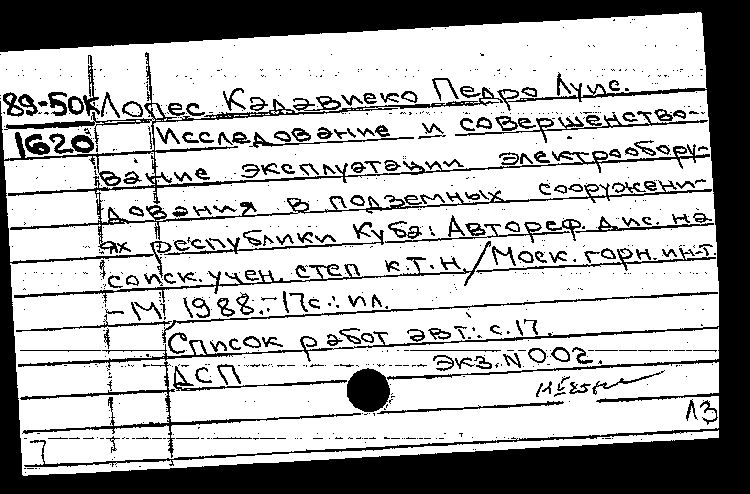 89-50к Лопес Кадавиеко Педро Луис.
1620 Исследование и совершенство-
вание эксплуатации электрообору-
дования в подземных сооружени-
ях республики Куба: Автореф. дис. на
соиск. учен. степ к.т.н. / Моск. горн. ин-т.
- М, 1988. - 17с.: ил.
Список работ авт.: с. 17.
ДСП Экз. N 002.
13
7